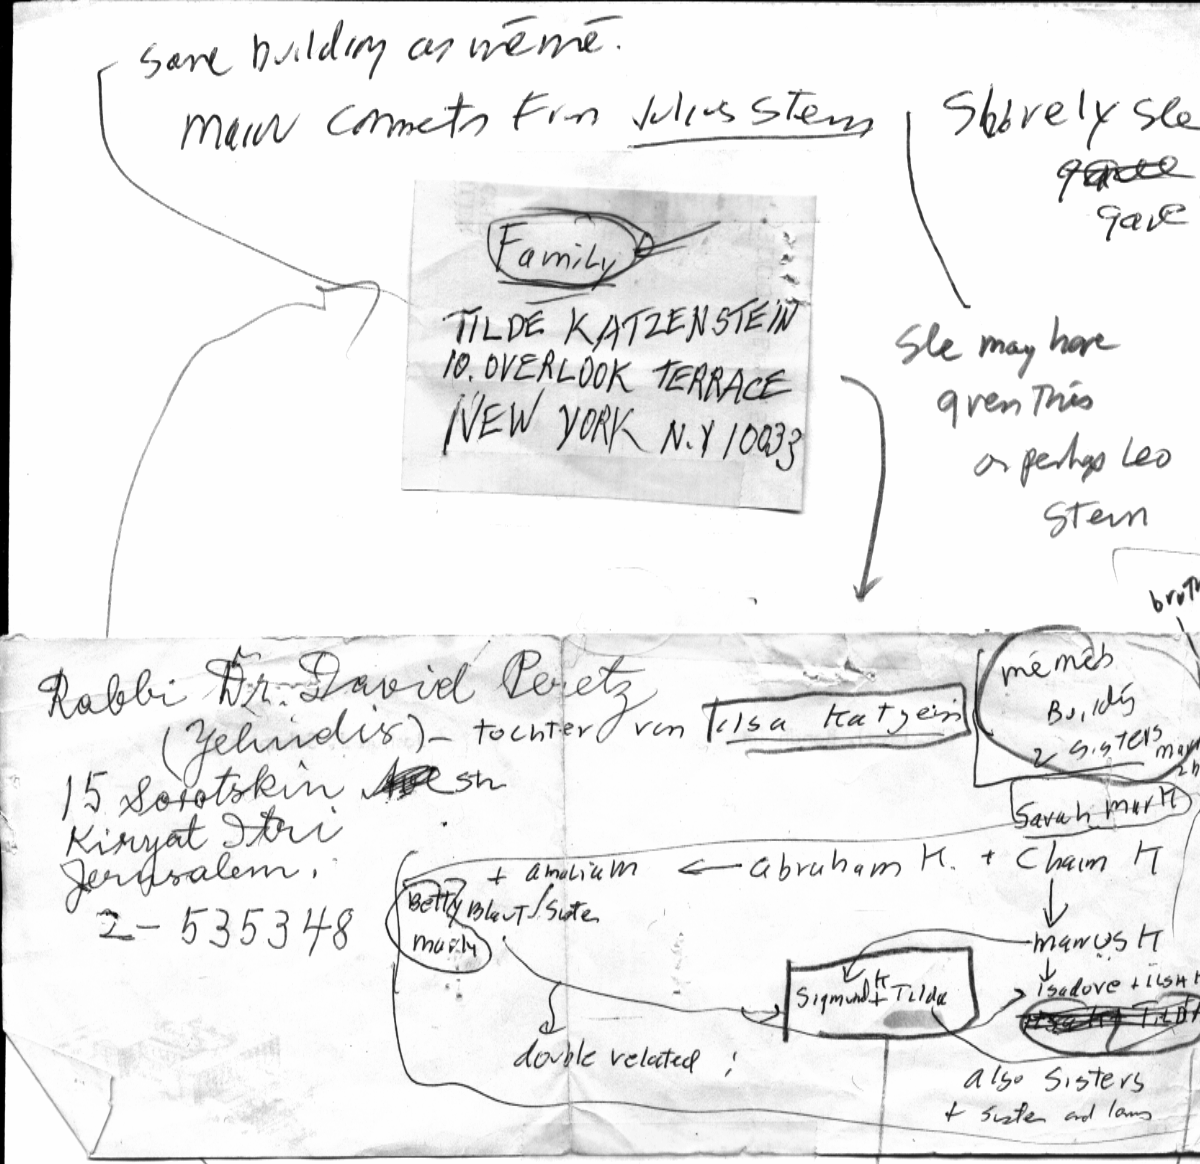 same building as mémé.
main connects from Julius Stern
Shorely she
gave
Family
TILDE KATZENSTEIN
10. OVERLOOK TERRACE
NEW YORK N.Y 10033
She may have
given this
or perhaps Leo
Stern
Rabbi Dr. David Peretz
(Yehudis) - tochter von Ilsa Katzein
15 Sorotskin St
Kiryat Itri
Jerusalem.
2-535348
mémés
Building
2 sisters
Sarah
+ amalia M ← abraham K. + Chaim K
Betty Blaut / Sister
manus K
Sigmund K + Tilda
Isadore + ILSA K
double related
also Sisters
+ sister and laws